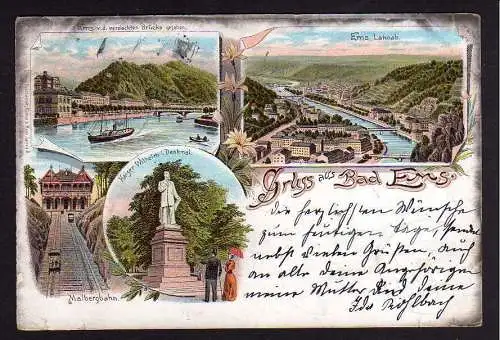 Ems v. d. verdeckten Brücke gesehen.
Ems, Lahnab.
Kaiser Wilhelm I. Denkmal.
Malbergbahn.
Gruss aus Bad Ems.
die herzlichsten Wünsche
zum heutigen Tage, sendet
nebst vielen Grüßen, auch
an alle deine Angehörigen
meine Mutter und deine
Ida Kohlbach